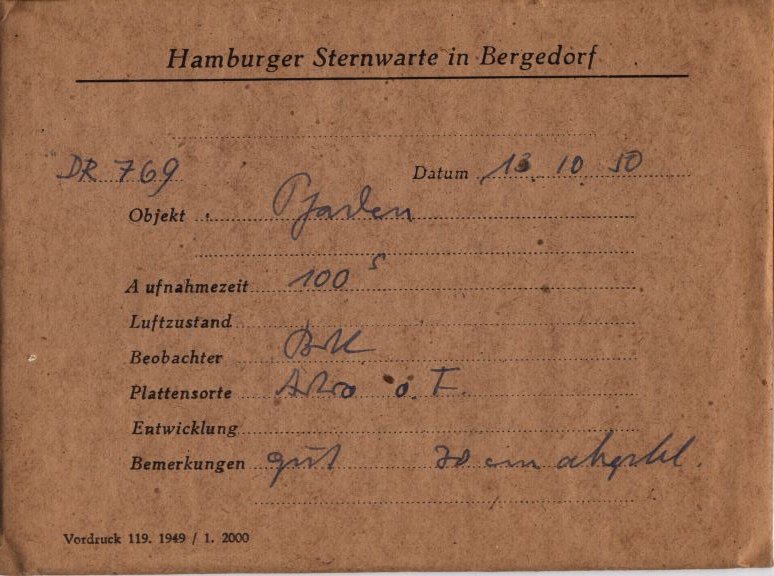 Hamburger Sternwarte in Bergedorf
DR 769 Datum 13 10 50
Objekt
Aufnahmezeit 100 s
Luftzustand
Beobachter
Plattensorte Astro o. F.
Entwicklung
Bemerkungen gut 70 cm
Vordruck 119. 1949 / 1. 2000